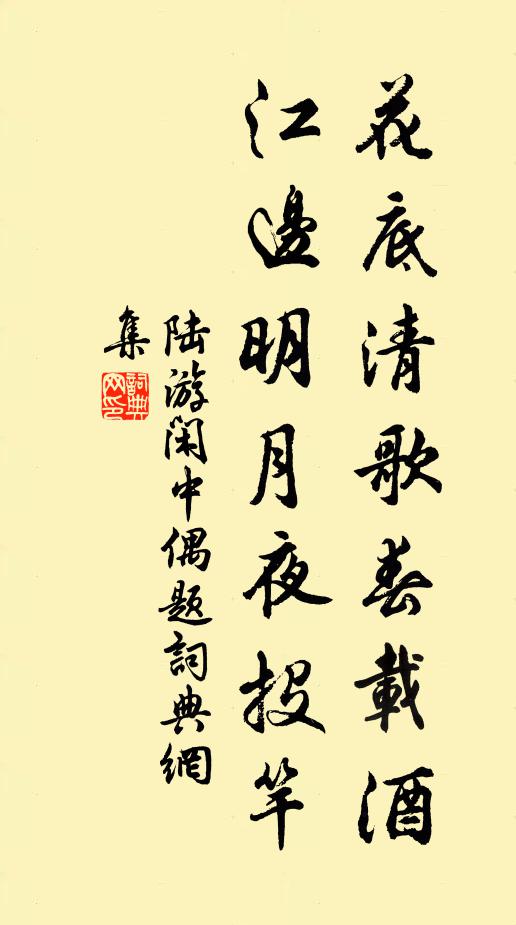 花底清歌春載酒
江邊明月夜投竿
陸游閑中偶題詞典網
集
詞典
网印